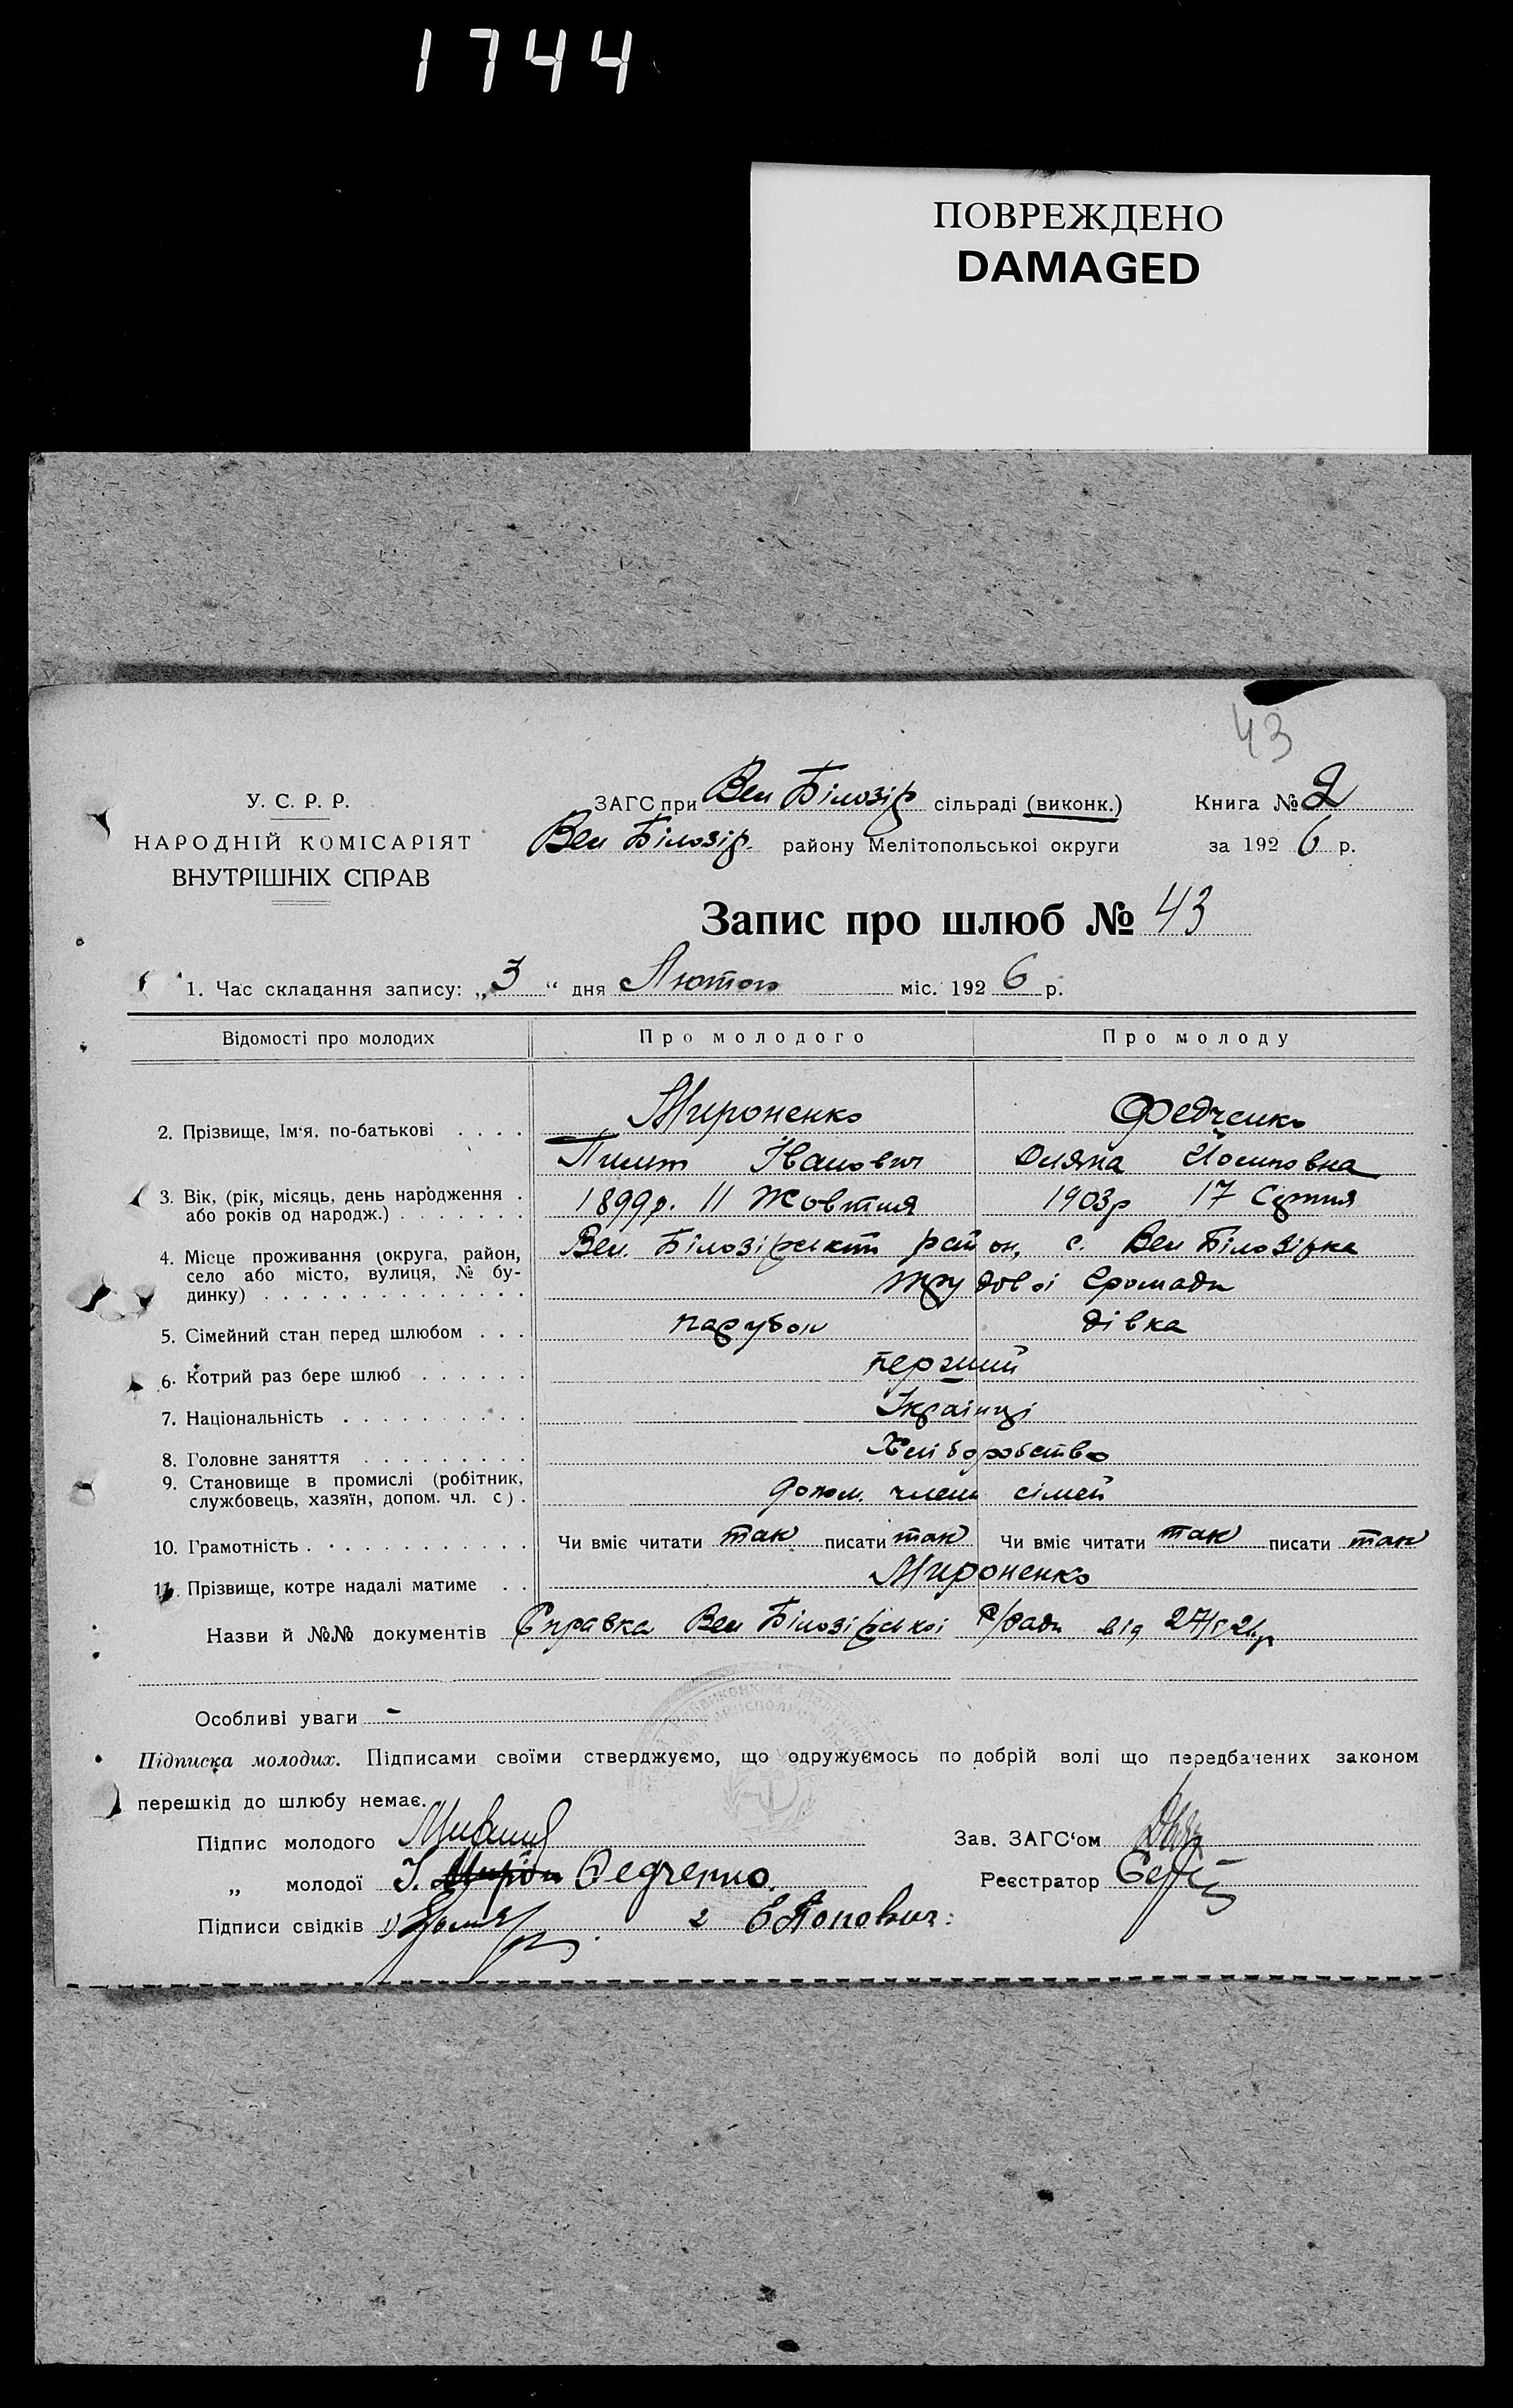 1744
ПОВРЕЖДЕНО
DAMAGED
43
У. С. Р. Р.
НАРОДНІЙ КОМІСАРІЯТ
ВНУТРІШНІХ СПРАВ
ЗАГС при Вел Білозір сільраді (виконк.)
Вел Білозір. району Мелітопольської округи
Книга № 2
за 1926 р.
Запис про шлюб № 43
1. Час складання запису: „3“ дня Лютого міс. 1926 р.
Відомості про молодих Про молодого Про молоду
2. Прізвище, Ім'я, по-батькові . . . . Мироненко Федченко
Пилип Іванович Йосиповна
3. Вік, (рік, місяць, день народження . 1899р. 11 Жовтня 1903р 17 Серпня
або років од народж.) . . . . . . .
4. Місце проживання (округа, район, Вел. Білозірський район, с. Вел Білозірка
село або місто, вулиця, № бу-
динку) . . . . . . . . . . . . . . трудової громади
5. Сімейний стан перед шлюбом . . . парубок дівка
6. Котрий раз бере шлюб . . . . . . перший
7. Національність . . . . . . . . . . Українці
8. Головне заняття . . . . . . . . . Хліборобство
9. Становище в промислі (робітник,
службовець, хазяїн, допом. чл. с) . допом. члени сімей
10. Грамотність . . . . . . . . . . . . Чи вміє читати так писати так Чи вміє читати так писати так
11. Прізвище, котре надалі матиме . . Мироненко
Назви й №№ документів Справка Вел Білозірської с/ради від 27/I 26р
Особливі уваги –
Підписка молодих. Підписами своїми стверджуємо, що одружуємось по добрій волі що передбачених законом
перешкід до шлюбу немає.
Підпис молодого
Зав. ЗАГС'ом
„ молодої Федченко.
Реєстратор
Підписи свідків 1) 2 Є Попович